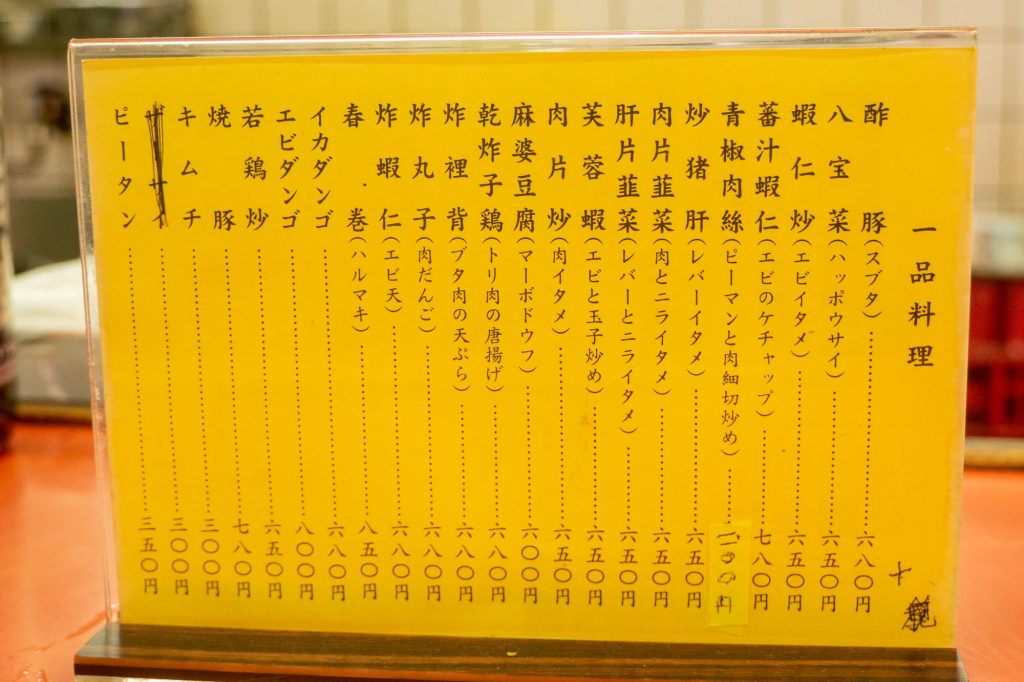 一品料理
酢豚(スブタ)………六八〇円
八宝菜(ハッポウサイ)………六五〇円
蝦仁炒(エビイタメ)………六五〇円
蕃汁蝦仁(エビのケチャップ)………七八〇円
青椒肉絲(ピーマンと肉細切炒め)………円
炒猪肝(レバーイタメ)………六五〇円
肉片韮菜(肉とニライタメ)………六五〇円
肝片韮菜(レバーとニライタメ)………六五〇円
芙蓉蝦(エビと玉子炒め)………六五〇円
肉片炒(肉イタメ)………六五〇円
麻婆豆腐(マーボドウフ)………六〇〇円
乾炸子鶏(トリ肉の唐揚げ)………六八〇円
炸裡背(ブタ肉の天ぷら)………六八〇円
炸丸子(肉だんご)………六八〇円
炸蝦仁(エビ天)………六八〇円
春巻(ハルマキ)………八五〇円
イカダンゴ………六八〇円
エビダンゴ………八〇〇円
若鶏炒………六五〇円
焼豚………七八〇円
キムチ………三〇〇円
ザサイ………三〇〇円
ピータン………三五〇円